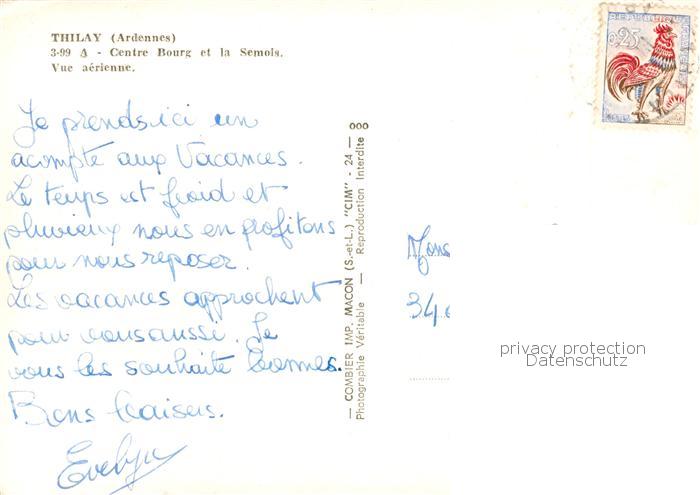 THILAY (Ardennes)
3-99 A - Centre Bourg et la Semois.
Vue aérienne.
Je prends ici un
acompte aux Vacances.
Le temps est froid et
pluvieux nous en profitons
pour nous reposer.
Les vacances approchent
pour vous aussi. Je
vous les souhaite bonnes.
Bons baisers.
Evelyne
— COMBIER IMP. MACON (S.-et-L.) "CIM" - 24 — ooo
Photographie Véritable — Reproduction Interdite
0,25
Mons
34
privacy protection
Datenschutz